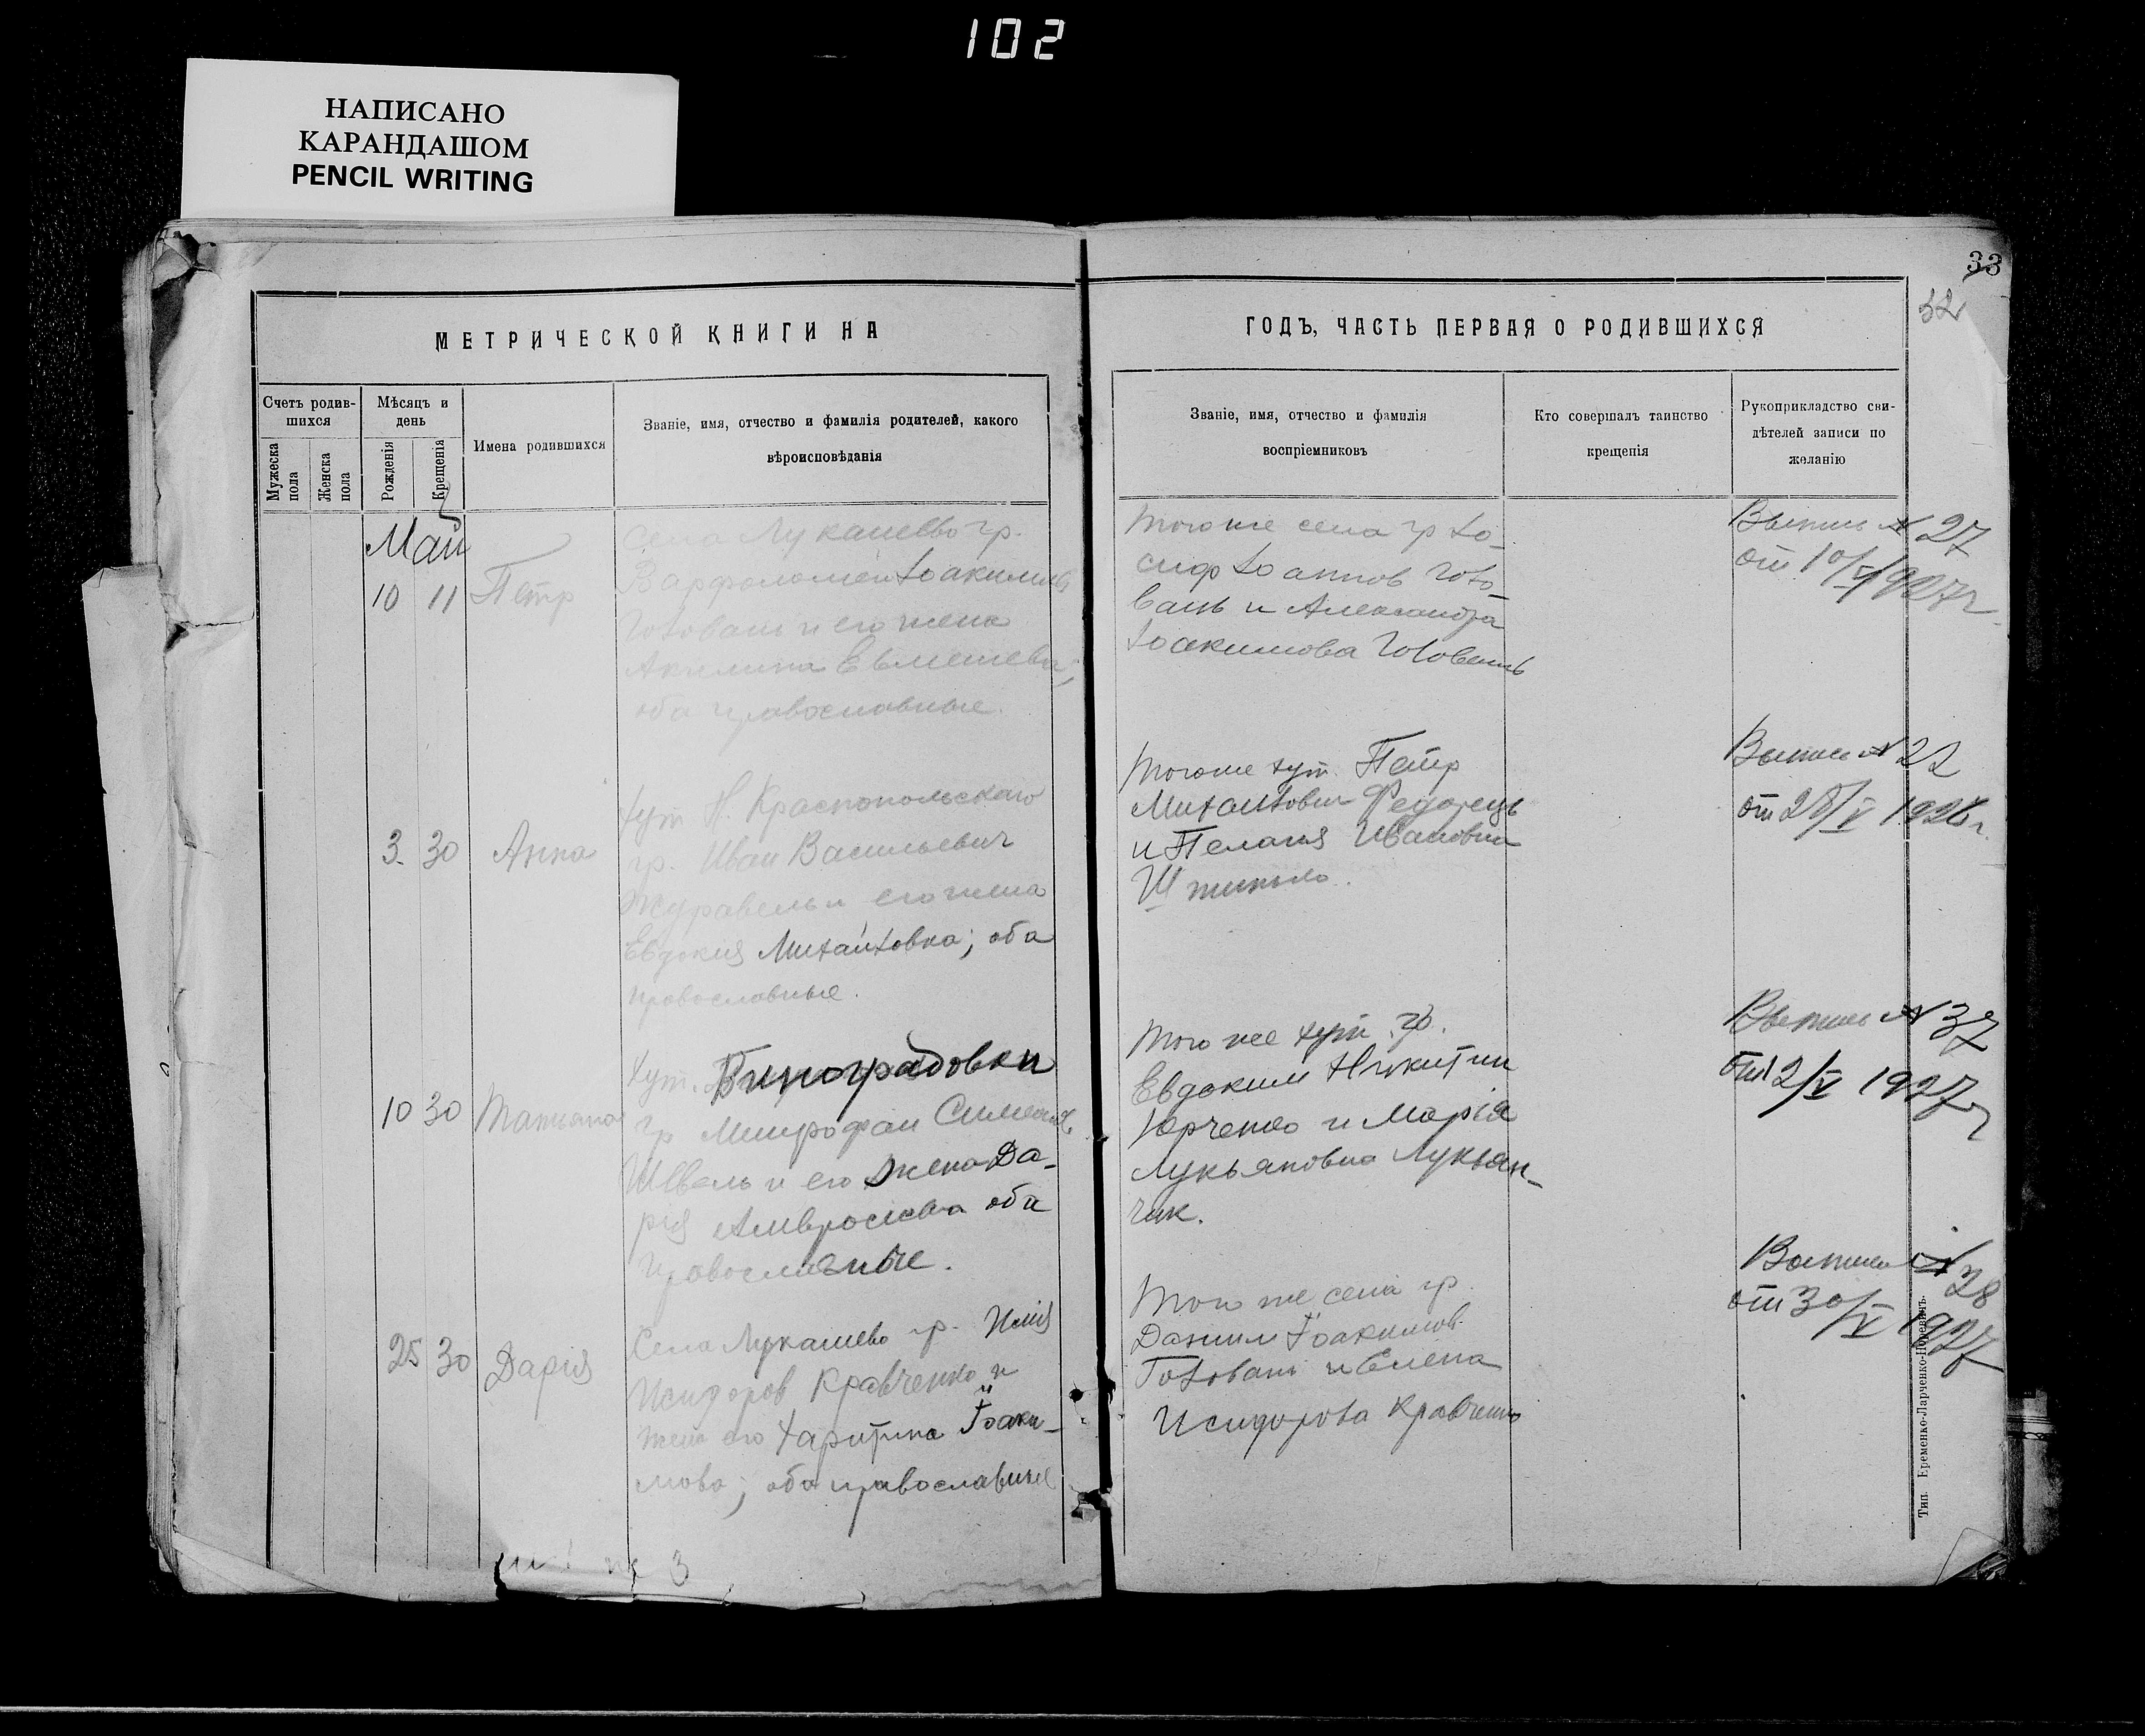 102
НАПИСАНО
КАРАНДАШОМ
PENCIL WRITING
33
32
МЕТРИЧЕСКОЙ КНИГИ НА
ГОДЪ, ЧАСТЬ ПЕРВАЯ О РОДИВШИХСЯ
Счетъ родив-
шихся
Мужеска
пола
Женска
пола
Мѣсяцъ и
день
Рожденія
Крещенія
Имена родившихся
Званіе, имя, отчество и фамилія родителей, какого
вѣроисповѣданія
Званіе, имя, отчество и фамилія
воспріемниковъ
Кто совершалъ таинство
крещенія
Рукоприкладство сви-
дѣтелей записи по
желанію
Май
10 11 Петр
села Лукашево гр.
Варфоломей Іоакимов
Головань и его жена
Акилина
оба православные.
Того же села гр Іо-
сиф Іоаннов Голо-
вань и Александра
Іоакимова Головань
Выпись № 27
от 10/V 1927 г
3 30 Анна
хут Н. Краснопольского
гр. Иван Васильевич
Журавель и его жена
Евдокия Михайловна; оба
православные.
Того же хут. Петр
Михайлович Федорець
и Пелагия Ивановна
Выпись № 22
от 28/V 1926 г.
10 30 Татьана
хут. Виноградовки
гр Митрофан
Швель и его жена Да-
рия Амвросиева оба
православные.
Того же хут. гр.
Евдоким Никитин
Юрченко и Марія
Лукьяновна Лукьян-
чик.
Выпись № 37
от 12/V 1927 г
25 30 Дария
Села Лукашево гр. Илия
Исидоров Кравченко и
жена его Харитина Іоаки-
мова; оба православные
Того же села гр.
Даниил Іоакимов
Головань и Елена
Исидорова Кравченко
Выпись № 28
от 30/V 1927
3
Тип. Еременко-Ларченко-Норевичъ.